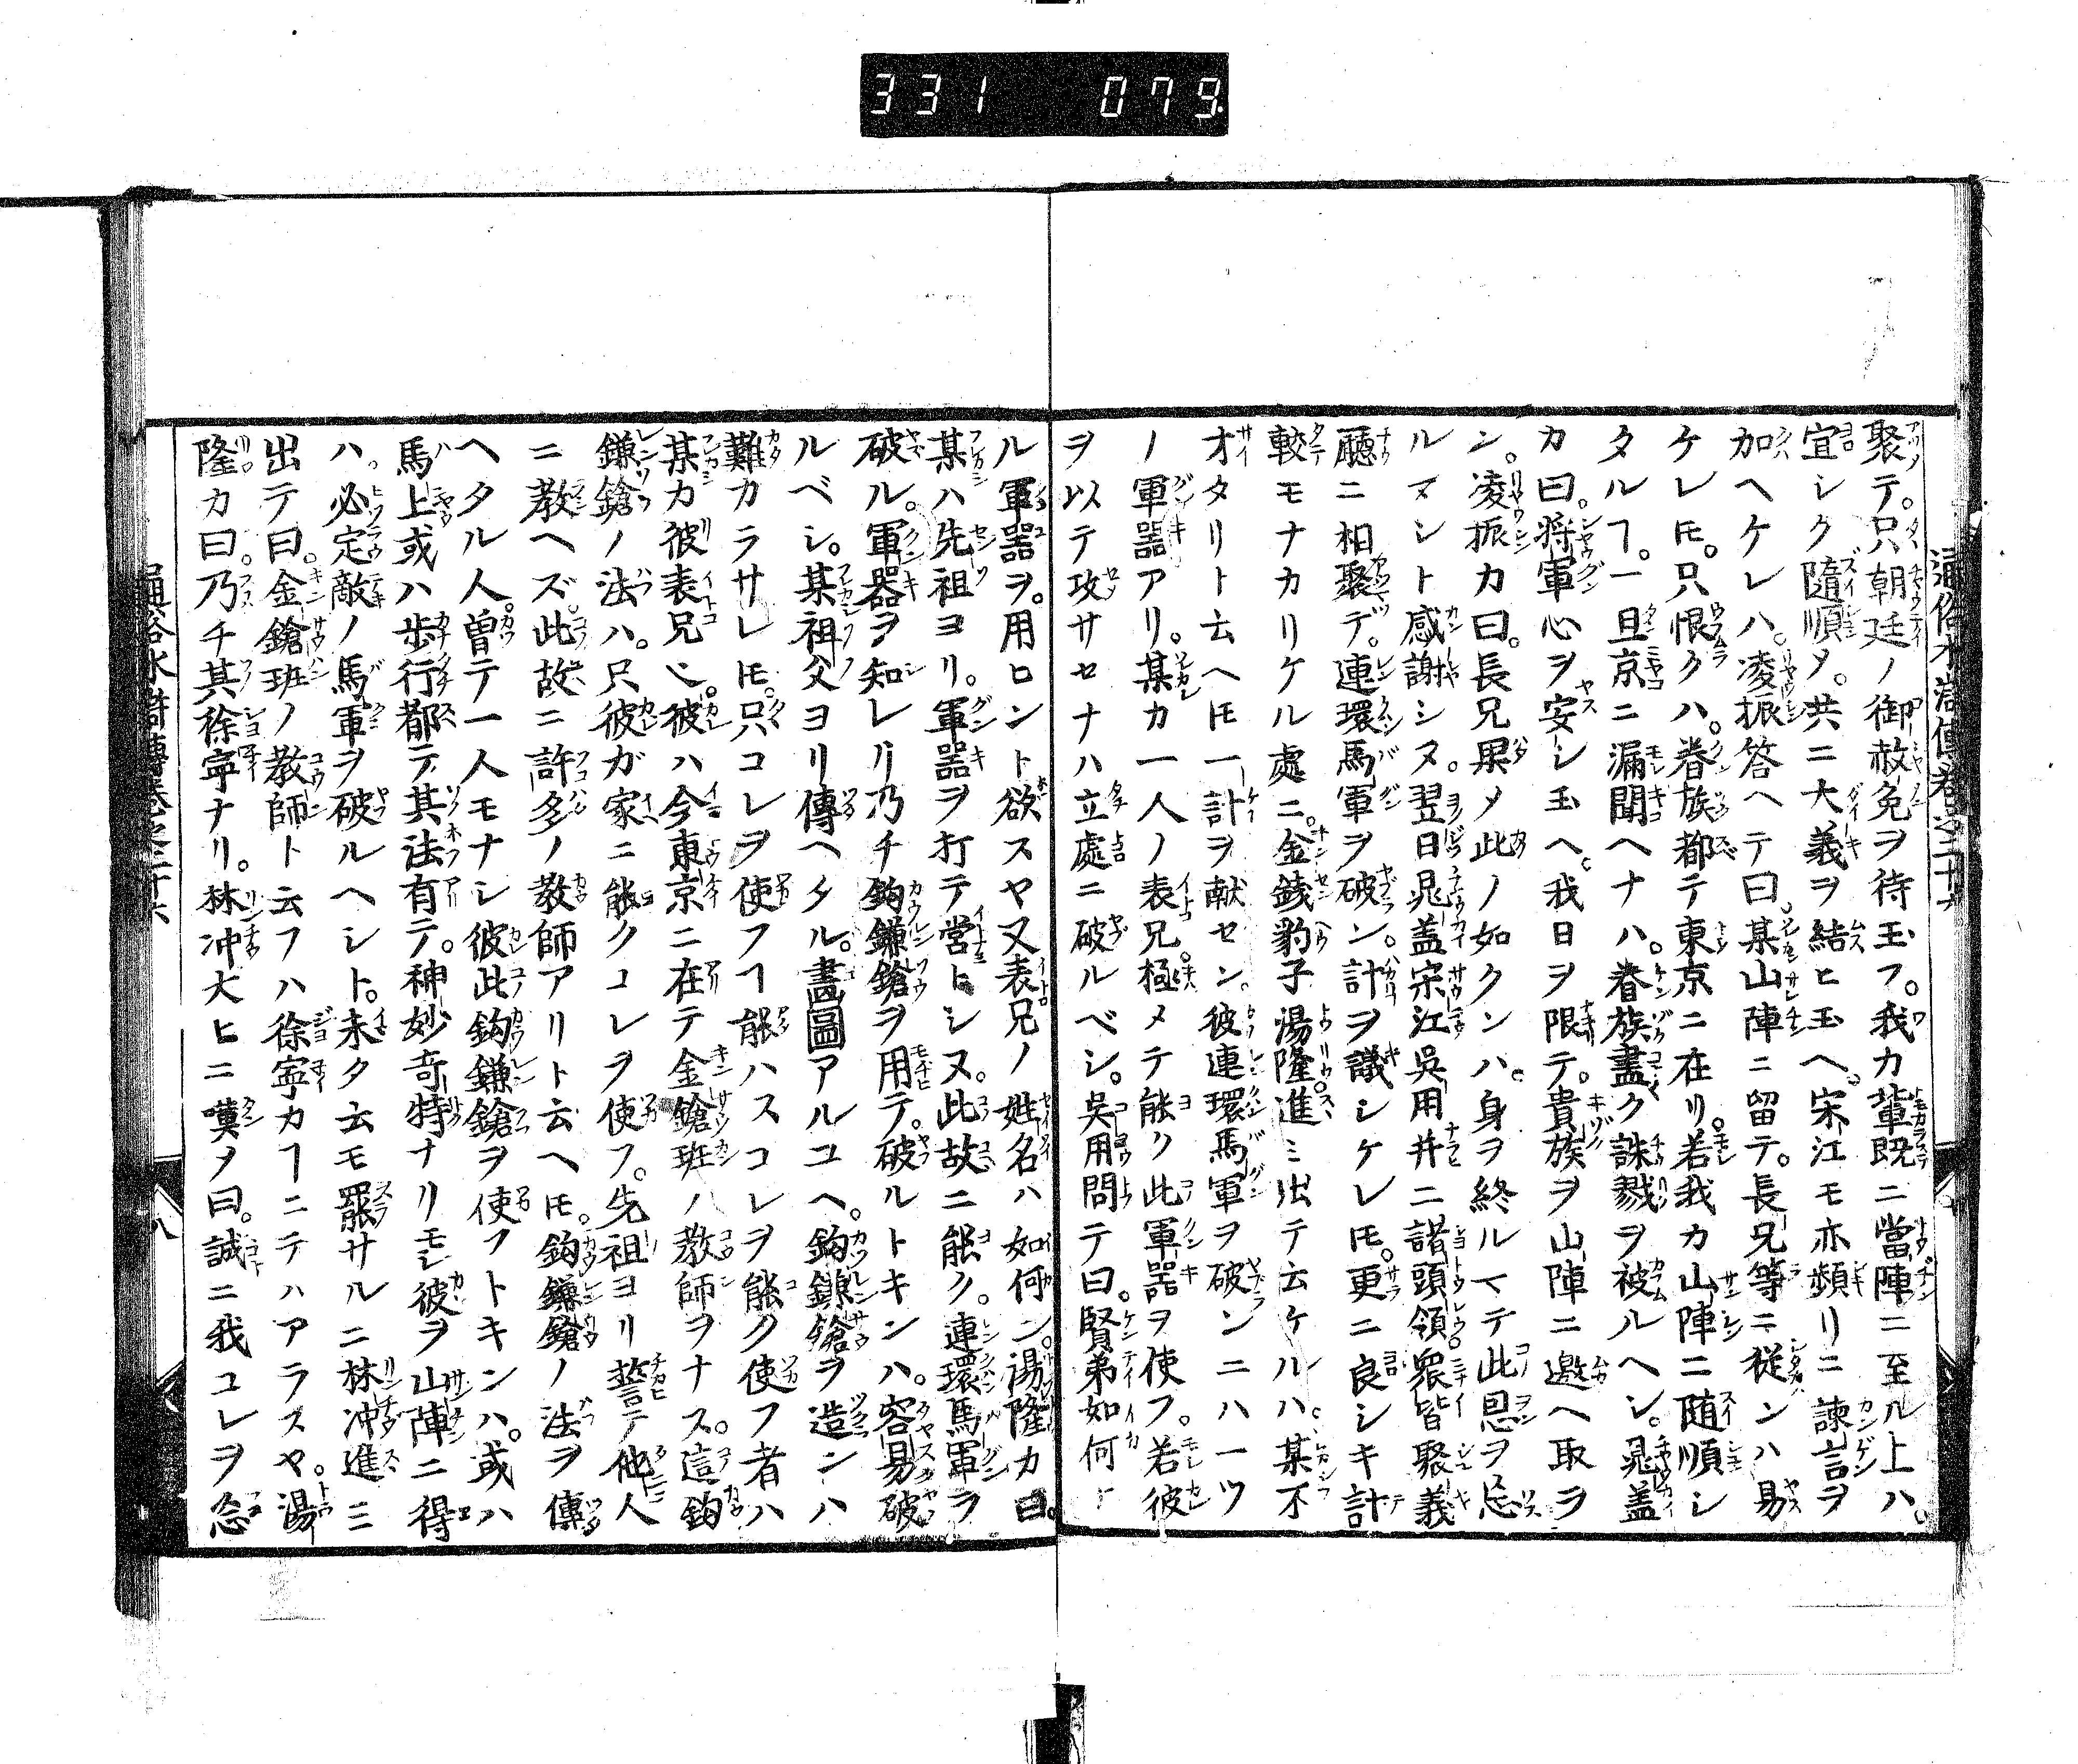 331 079
聚テ。只朝廷ノ御赦免ヲ待玉フ。我カ輩既ニ當陣ニ至ル上ハ。
宜シク隨順メ。共ニ大義ヲ結ヒ玉ヘ。宋江モ亦頻リニ諫言ヲ
加ヘケレハ。凌振答ヘテ曰。某山陣ニ留テ。長兄等ニ従ンハ易
ケレ𪜈。只恨クハ。眷族都テ東京ニ在リ。若我カ山陣ニ随順シ
タルヿ。一旦京ニ漏聞ヘナハ。眷族盡ク誅戮ヲ被ルヘシ。晁盖
カ曰。将軍心ヲ安シ玉ヘ。我日ヲ限テ。貴族ヲ山陣ニ邀ヘ取ラ
ン。凌振カ曰。長兄果メ此ノ如クンハ。身ヲ終ルマテ此恩ヲ忘
ルマシト感謝シヌ。翌日晁盖宋江呉用并ニ諸頭領。衆皆聚義
廳ニ相聚テ。連環馬軍ヲ破ン。計ヲ議シケレ𪜈。更ニ良シキ計
較モナカリケル處ニ。金銭豹子湯隆。進ミ出テ云ケルハ。某不
才タリト云ヘ𪜈一計ヲ献セン。彼連環馬軍ヲ破ンニハ一ツ
ノ軍器アリ。某カ一人ノ表兄。極メテ能ク此軍器ヲ使フ。若彼
ヲ以テ攻サセナハ立處ニ破ルベシ。呉用問テ曰。賢弟如何ナ
ル軍器ヲ。用ロント欲スヤ又表兄ノ姓名ハ如何ン。湯隆カ曰。
某ハ先祖ヨリ。軍器ヲ打テ営トシヌ。此故ニ能ク。連環馬軍ヲ
破ル。軍器ヲ知レリ乃チ鈎鎌鎗ヲ用テ。破ルトキンハ。容易破
ルベシ。某祖父ヨリ傳ヘタル。畫圖アルユヘ。鈎鎌鎗ヲ造ンハ
難カラサレ𪜈。只コレヲ使フヿ能ハスコレヲ能ク使フ者ハ
某カ彼表兄ヒ。彼ハ今東京ニ在テ金鎗班ノ教師ヲナス。這鈎
鎌鎗ノ法ハ。只彼ガ家ニ能クコレヲ使フ。先祖ヨリ誓テ他人
ニ教ヘズ。此故ニ許多ノ教師アリト云ヘ𪜈。鈎鎌鎗ノ法ヲ傳
ヘタル人。曽テ一人モナシ彼此鈎鎌鎗ヲ使フトキンハ。或ハ
馬上或ハ歩行都テ其法有テ。神妙竒特ナリモシ彼ヲ山陣ニ得
ハ。必定敵ノ馬軍ヲ破ルヘシト。未タ云モ罷サルニ林冲進ミ
出テ曰。金鎗班ノ教師ト云フハ徐寧カヿニテハアラスヤ。湯
隆カ曰。乃チ其徐寧ナリ。林冲大ヒニ嘆メ曰。誠ニ我コレヲ忘
八